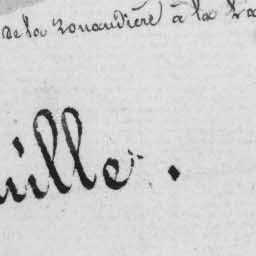 de la Zouaudière à la
uille.